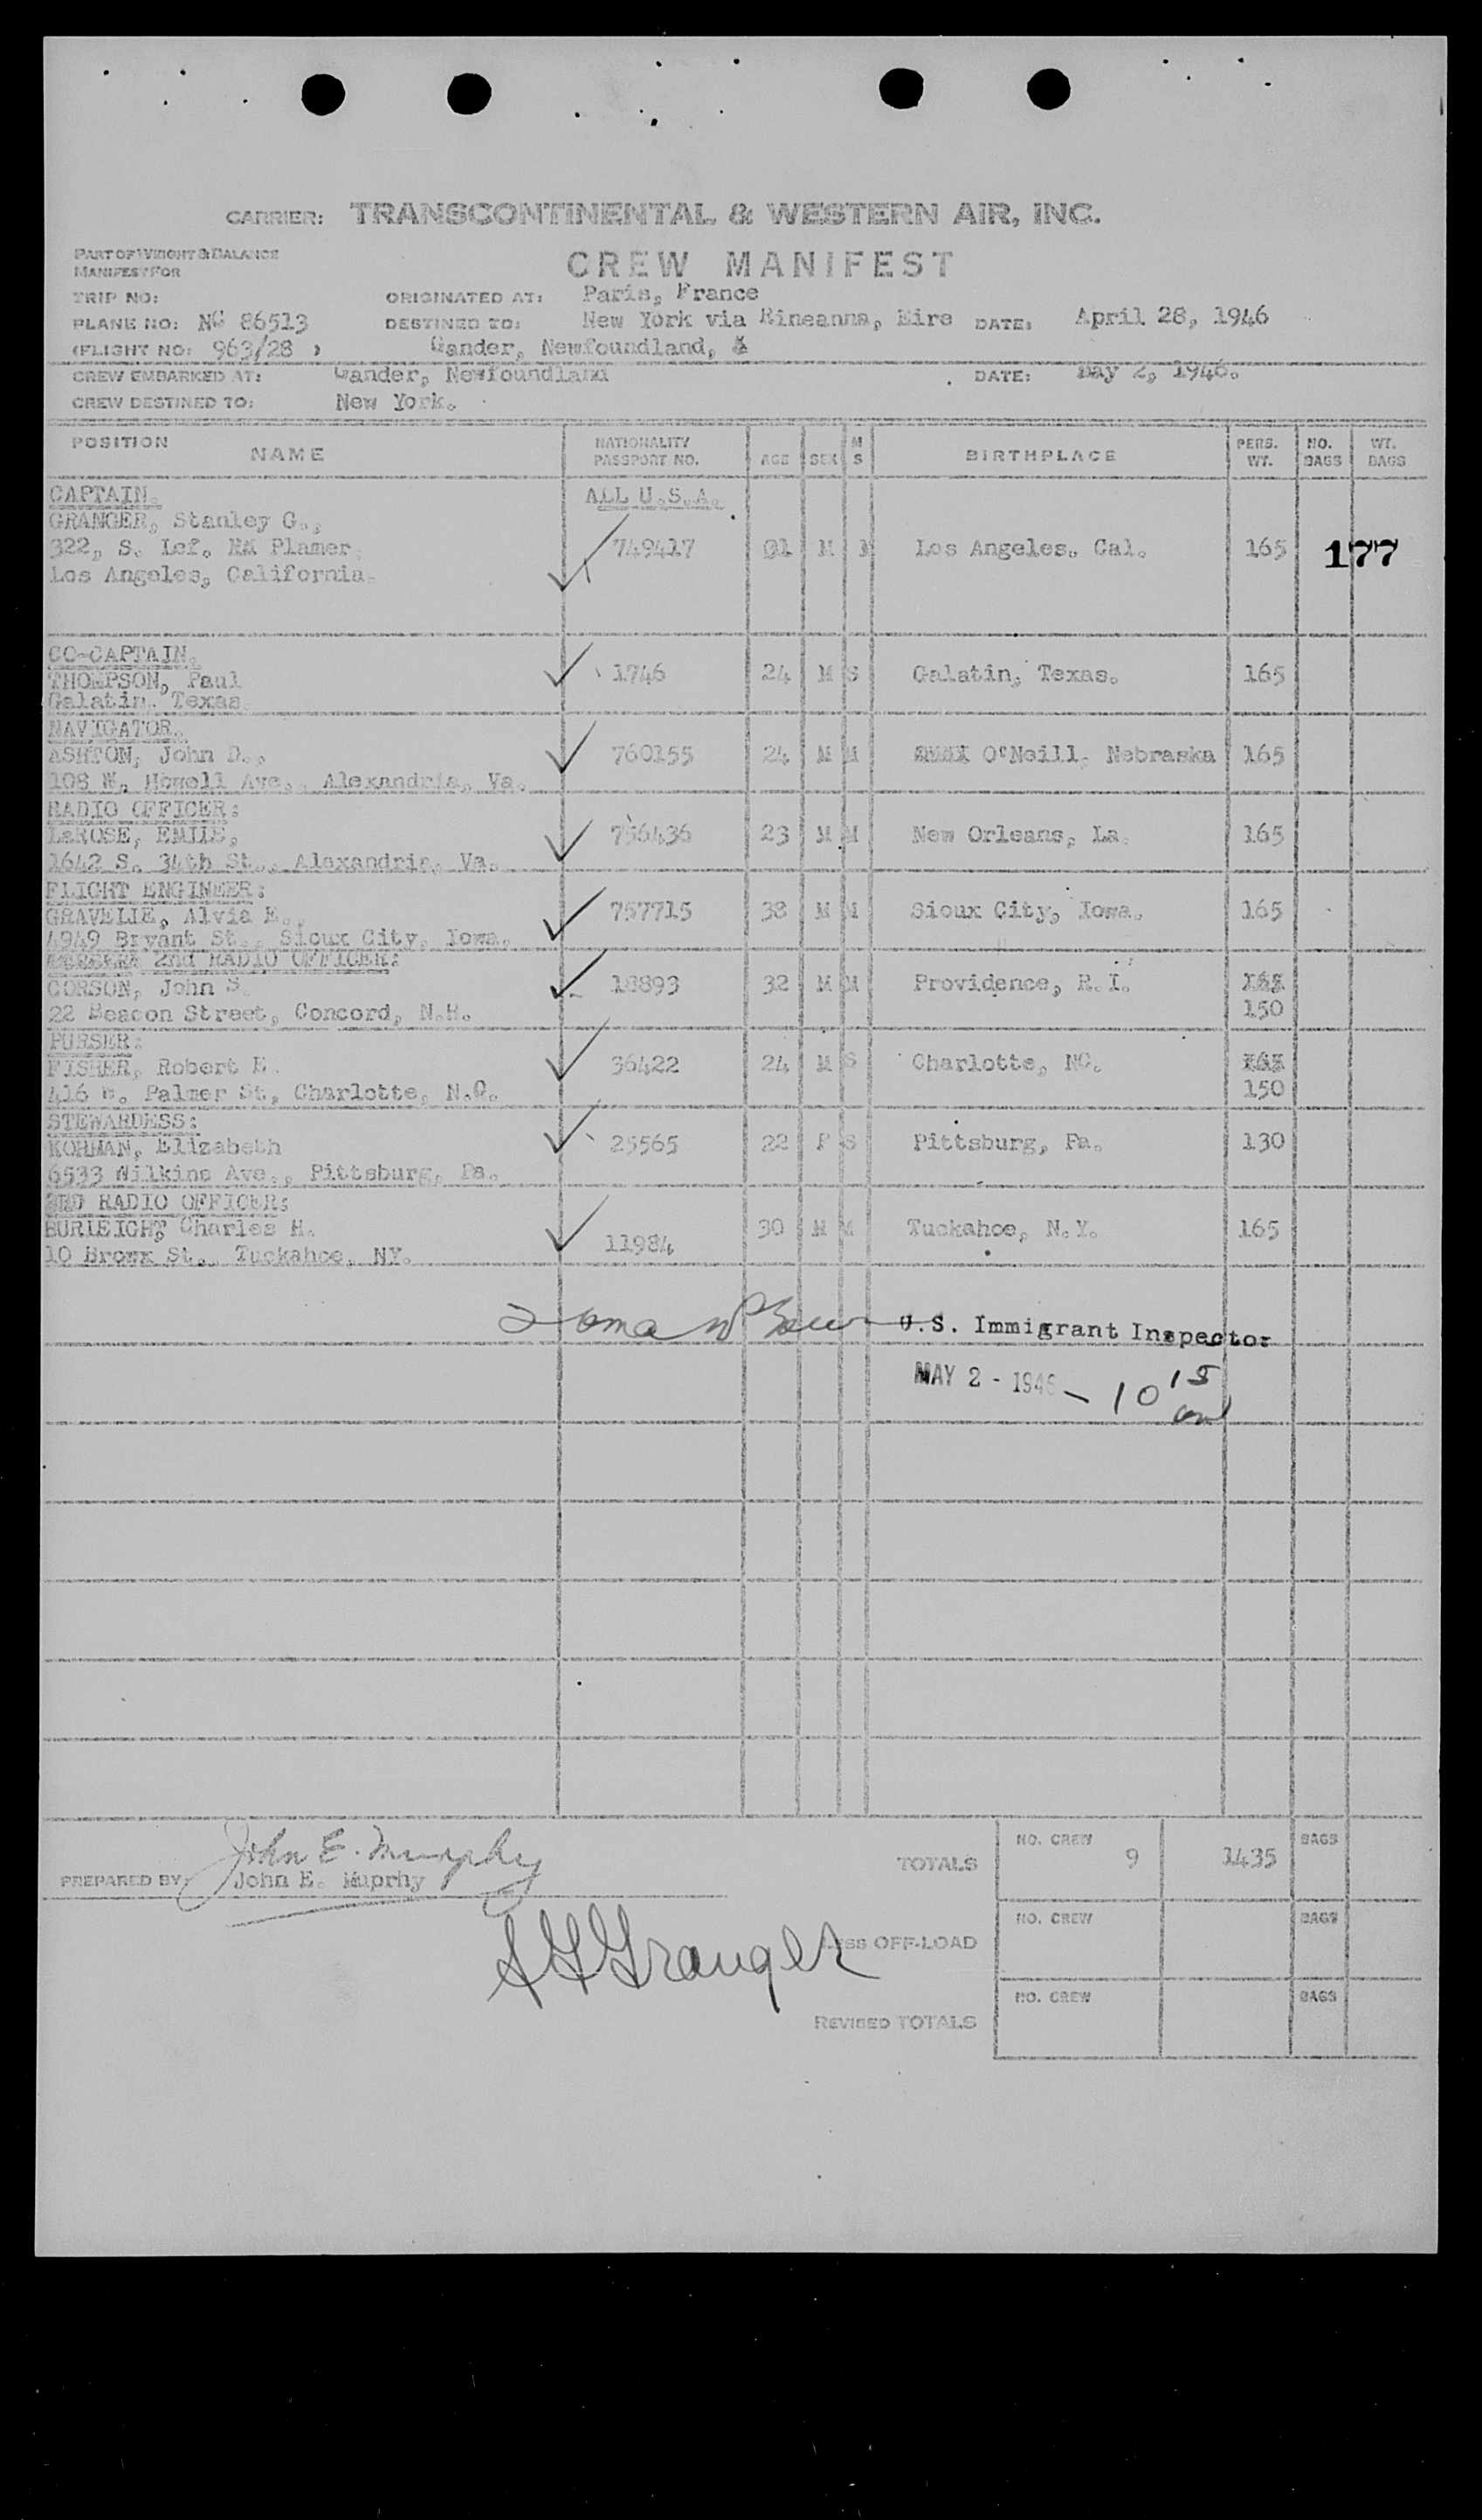 CARRIER: TRANSCONTINENTAL & WESTERN AIR, INC.
PART OF WEIGHT & BALANCE
MANIFEST FOR
CREW MANIFEST
TRIP NO: ORIGINATED AT: Paris, France
PLANE NO: NC 86513 DESTINED TO: New York via Rineanna, Eire DATE: April 28, 1946
(FLIGHT NO: 963/28 ) Gander, Newfoundland, &
CREW EMBARKED AT: Gander, Newfoundland DATE: May 2, 1946.
CREW DESTINED TO: New York.
POSITION NAME NATIONALITY PASSPORT NO. AGE SEX M S BIRTHPLACE PERS. WT. NO. BAGS WT. BAGS
CAPTAIN. ALL U.S.A.
GRANGER, Stanley G.,
322, S. Plamer 749417 M Los Angeles. Cal. 165 177
Los Angeles, California.
CO-CAPTAIN.
THOMPSON, Paul 1746 24 M S Galatin, Texas. 165
Galatin. Texas
NAVIGATOR.
ASHTON, John D., 760155 24 M M O'Neill, Nebraska 165
108 W. Howell Ave., Alexandria, Va.
RADIO OFFICER:
LaROSE, EMILE, 756436 23 M M New Orleans, La. 165
1642 S. 34th St., Alexandria, Va.
FLIGHT ENGINEER:
GRAVELIE, Alvia E., 757715 38 M M Sioux City, Iowa. 165
4949 Bryant St., Sioux City, Iowa.
2nd RADIO OFFICER:
CORSON, John S. 18893 32 M M Providence, R.I. 165
22 Beacon Street, Concord, N.H. 150
PURSER:
FISHER, Robert E. 36422 24 M S Charlotte, NC. 165
416 E. Palmer St, Charlotte, N.C. 150
STEWARDESS:
KORMAN, Elizabeth 25565 22 F S Pittsburg, Pa. 130
6533 Wilkins Ave., Pittsburg, Pa.
3RD RADIO OFFICER:
BURLEIGH, Charles H. 11984 30 M M Tuckahoe, N.Y. 165
10 Bronx St., Tuckahoe, NY.
U.S. Immigrant Inspector
MAY 2 - 1946 - 10 15 am
John E. Murphy
PREPARED BY: John E. Muprhy
TOTALS NO. CREW 9 1435 BAGS
S G Granger
LESS OFF-LOAD NO. CREW BAGS
REVISED TOTALS NO. CREW BAGS